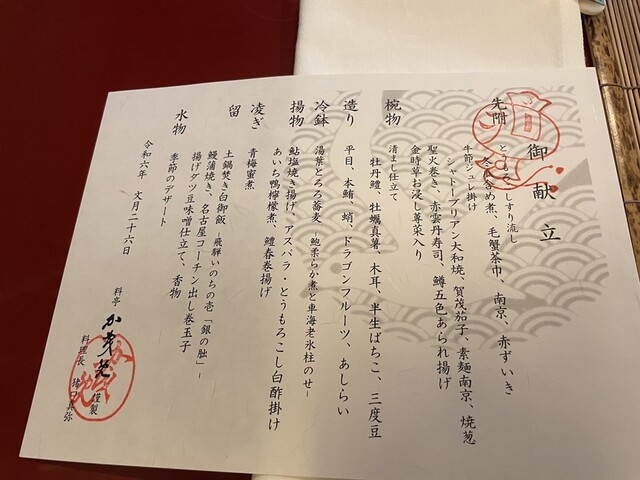 御献立
先附
とうもろこしすり流し
冬瓜含め煮、毛蟹茶巾、南京、赤ずいき
牛節ジュレ掛け
シャトーブリアン大和焼、賀茂茄子、素麺南京、焼葱
聖火巻き、赤雲丹寿司、鱒五色あられ揚げ
金時草お浸し蓴菜入り
椀物
清まし仕立て
牡丹鱧、牡蠣真薯、木耳、半生ばちこ、三度豆
造り
平目、本鮪、蛸、ドラゴンフルーツ、あしらい
冷鉢
湯葉とろろ蕎麦 -鮑柔らか煮と車海老氷柱のせ-
揚物
鮎塩焼き揚げ、アスパラ・とうもろこし白酢掛け
あいち鴨檸檬煮、鱧春巻揚げ
凌ぎ
青梅蜜煮
留
土鍋焚き白御飯 -飛騨いのちの壱「銀の朏」-
鰻蒲焼き、名古屋コーチン出し巻玉子
揚げダツ豆味噌仕立て、香物
水物
季節のデザート
令和六年 文月二十六日
料亭 か茂免 謹製
料理長